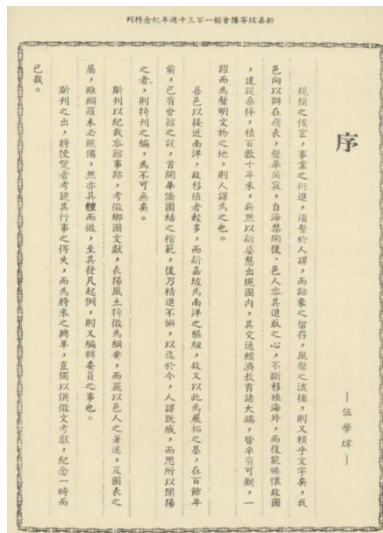 新嘉坡寧陽會館一百三十週年紀念特刊
序
—伍學焯—
規模之恢宏,事業之衍進,須繫於人謀,而跡象之留存,風聲之流播,則又賴乎文字矣,我
邑向以僻在海表,聲華闃寂,自海禁開後,邑人亦具進取之心,不斷移殖海外,而復能眷懷故國
,建設桑梓,積百數十年來,嶄然以新姿態出現國內,其交通經濟教育諸大端,皆卓有可觀,一
躍而為聲明文物之地,則人謀為之也。
吾邑以接近南洋,故移殖者較多,而新嘉坡為南洋之樞紐,故又以此為展拓之基,在百餘年
前,已有會館之設,首開華僑團結之楷範,復乃精進不懈,以迄於今,人謀既臧,而思所以闡揚
之者,則特刊之編,為不可無矣。
斯刊以紀載容館事跡,考徵鄉國文獻,表揚風土特徵為綱要,而麗以邑人之著述,及圖表之
屬,雖網羅未必賅備,然亦具體而微,至其發凡起例,則又編輯委員之事也。
斯刊之出,將使覽者考鏡其行事之得失,而為將來之興革,豈獨以供徵文考獻,紀念一時而
已哉。